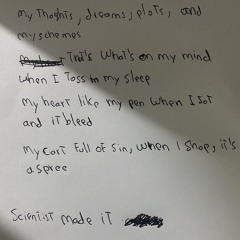 my thoghts, dreams, plots, and
my schemes
That's what's on my mind
when I toss in my sleep
my heart like my pen when I jot
and it bleed
my cart full of sin, when I shop, it's
a spree
Scientist made it